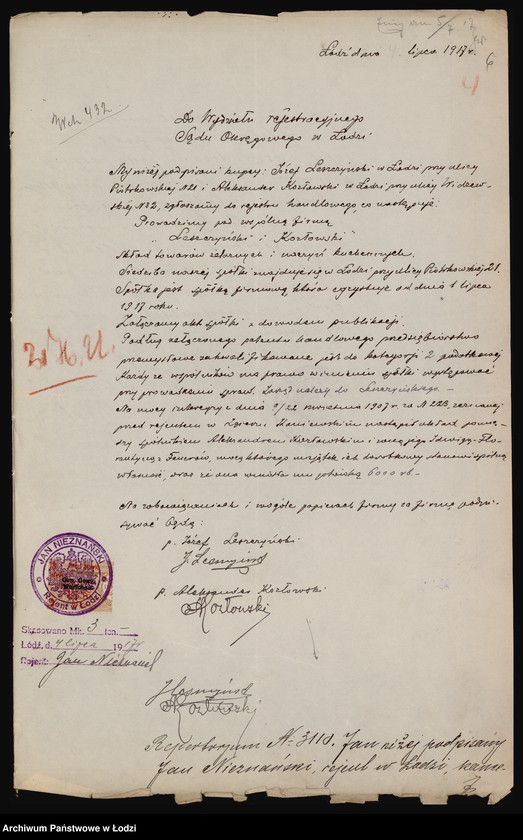 5/7 17
6
Łódź dnia 4 lipca 1917 r.
Nrch 432
Do Wydziału rejestracyjnego
Sądu Okręgowego w Łodzi
My niżej podpisani kupcy: Józef Leszczyński w Łodzi przy ulicy
Piotrkowskiej №21 i Aleksander Kozłowski w Łodzi przy ulicy Widzew-
skiej №2, zgłaszamy do rejestru handlowego, co następuje:
Prowadzimy pod wspólną firmą
„Leszczyński i Kozłowski"
skład towarów żelaznych i naczyń kuchennych.
Siedziba naszej spółki znajduje się w Łodzi przy ulicy Piotrkowskiej 21.
Spółka jest spółką firmową, która egzystuje od dnia 1 lipca
1917 roku.
Załączamy akt spółki z dowodem publikacji.
Podług załączonego patentu handlowego przedsiębiorstwo
przemysłowe jest do kategorji 2 podatkowej
Każdy ze wspólników ma prawo w imieniu spółki występować
przy prowadzeniu spraw. Zarząd należy do Leszczyńskiego. —
Na mocy z dnia 9/22 kwietnia 1907 r. za № 223, zeznanej
przed rejentem w Zgierzu nastąpił układ pomię-
dzy spółnikiem Aleksandrem Kozłowskim i żoną jego Jadwigą-
z mocy którego majątek ich dorobkowy stanowi spólną
własność, oraz że ona wniosła mu 6000 rb. —
Na zobowiązaniach i wogóle papierach firmy za firmę podpi-
sywać będą:
p. Józef Leszczyński
J. Leszczyński
p. Aleksander Kozłowski
AKozłowski
Zr. H. U.
JAN NIEZNAŃSKI
Gen. Gouv.
Warschau
Rejent w Łodzi
Skasowano Mk. 3 fen. —
Łódź, d. 4 lipca 1917
Rejent: Jan Nieznański
J Leszczyński
AKozłowski
Repertorjum № 3118. Ja niżej podpisany
Jan Nieznański, rejent w Łodzi,
Archiwum Państwowe w Łodzi